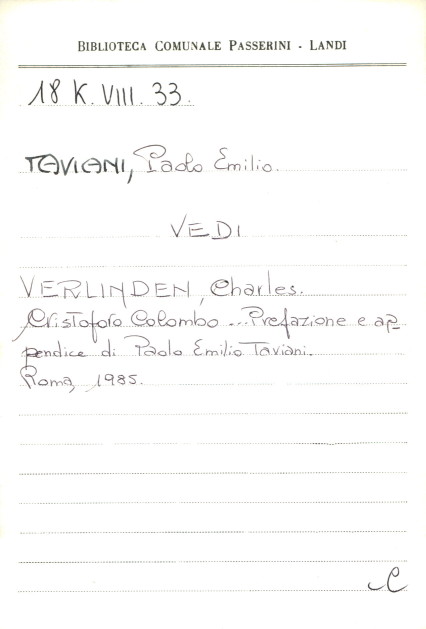 BIBLIOTECA COMUNALE PASSERINI - LANDI
18 K. VIII. 33.
TAVIANI, Paolo Emilio.
VEDI
VERLINDEN, Charles.
Cristoforo Colombo ... Prefazione e ap-
pendice di Paolo Emilio Taviani.
Roma, 1985.
C